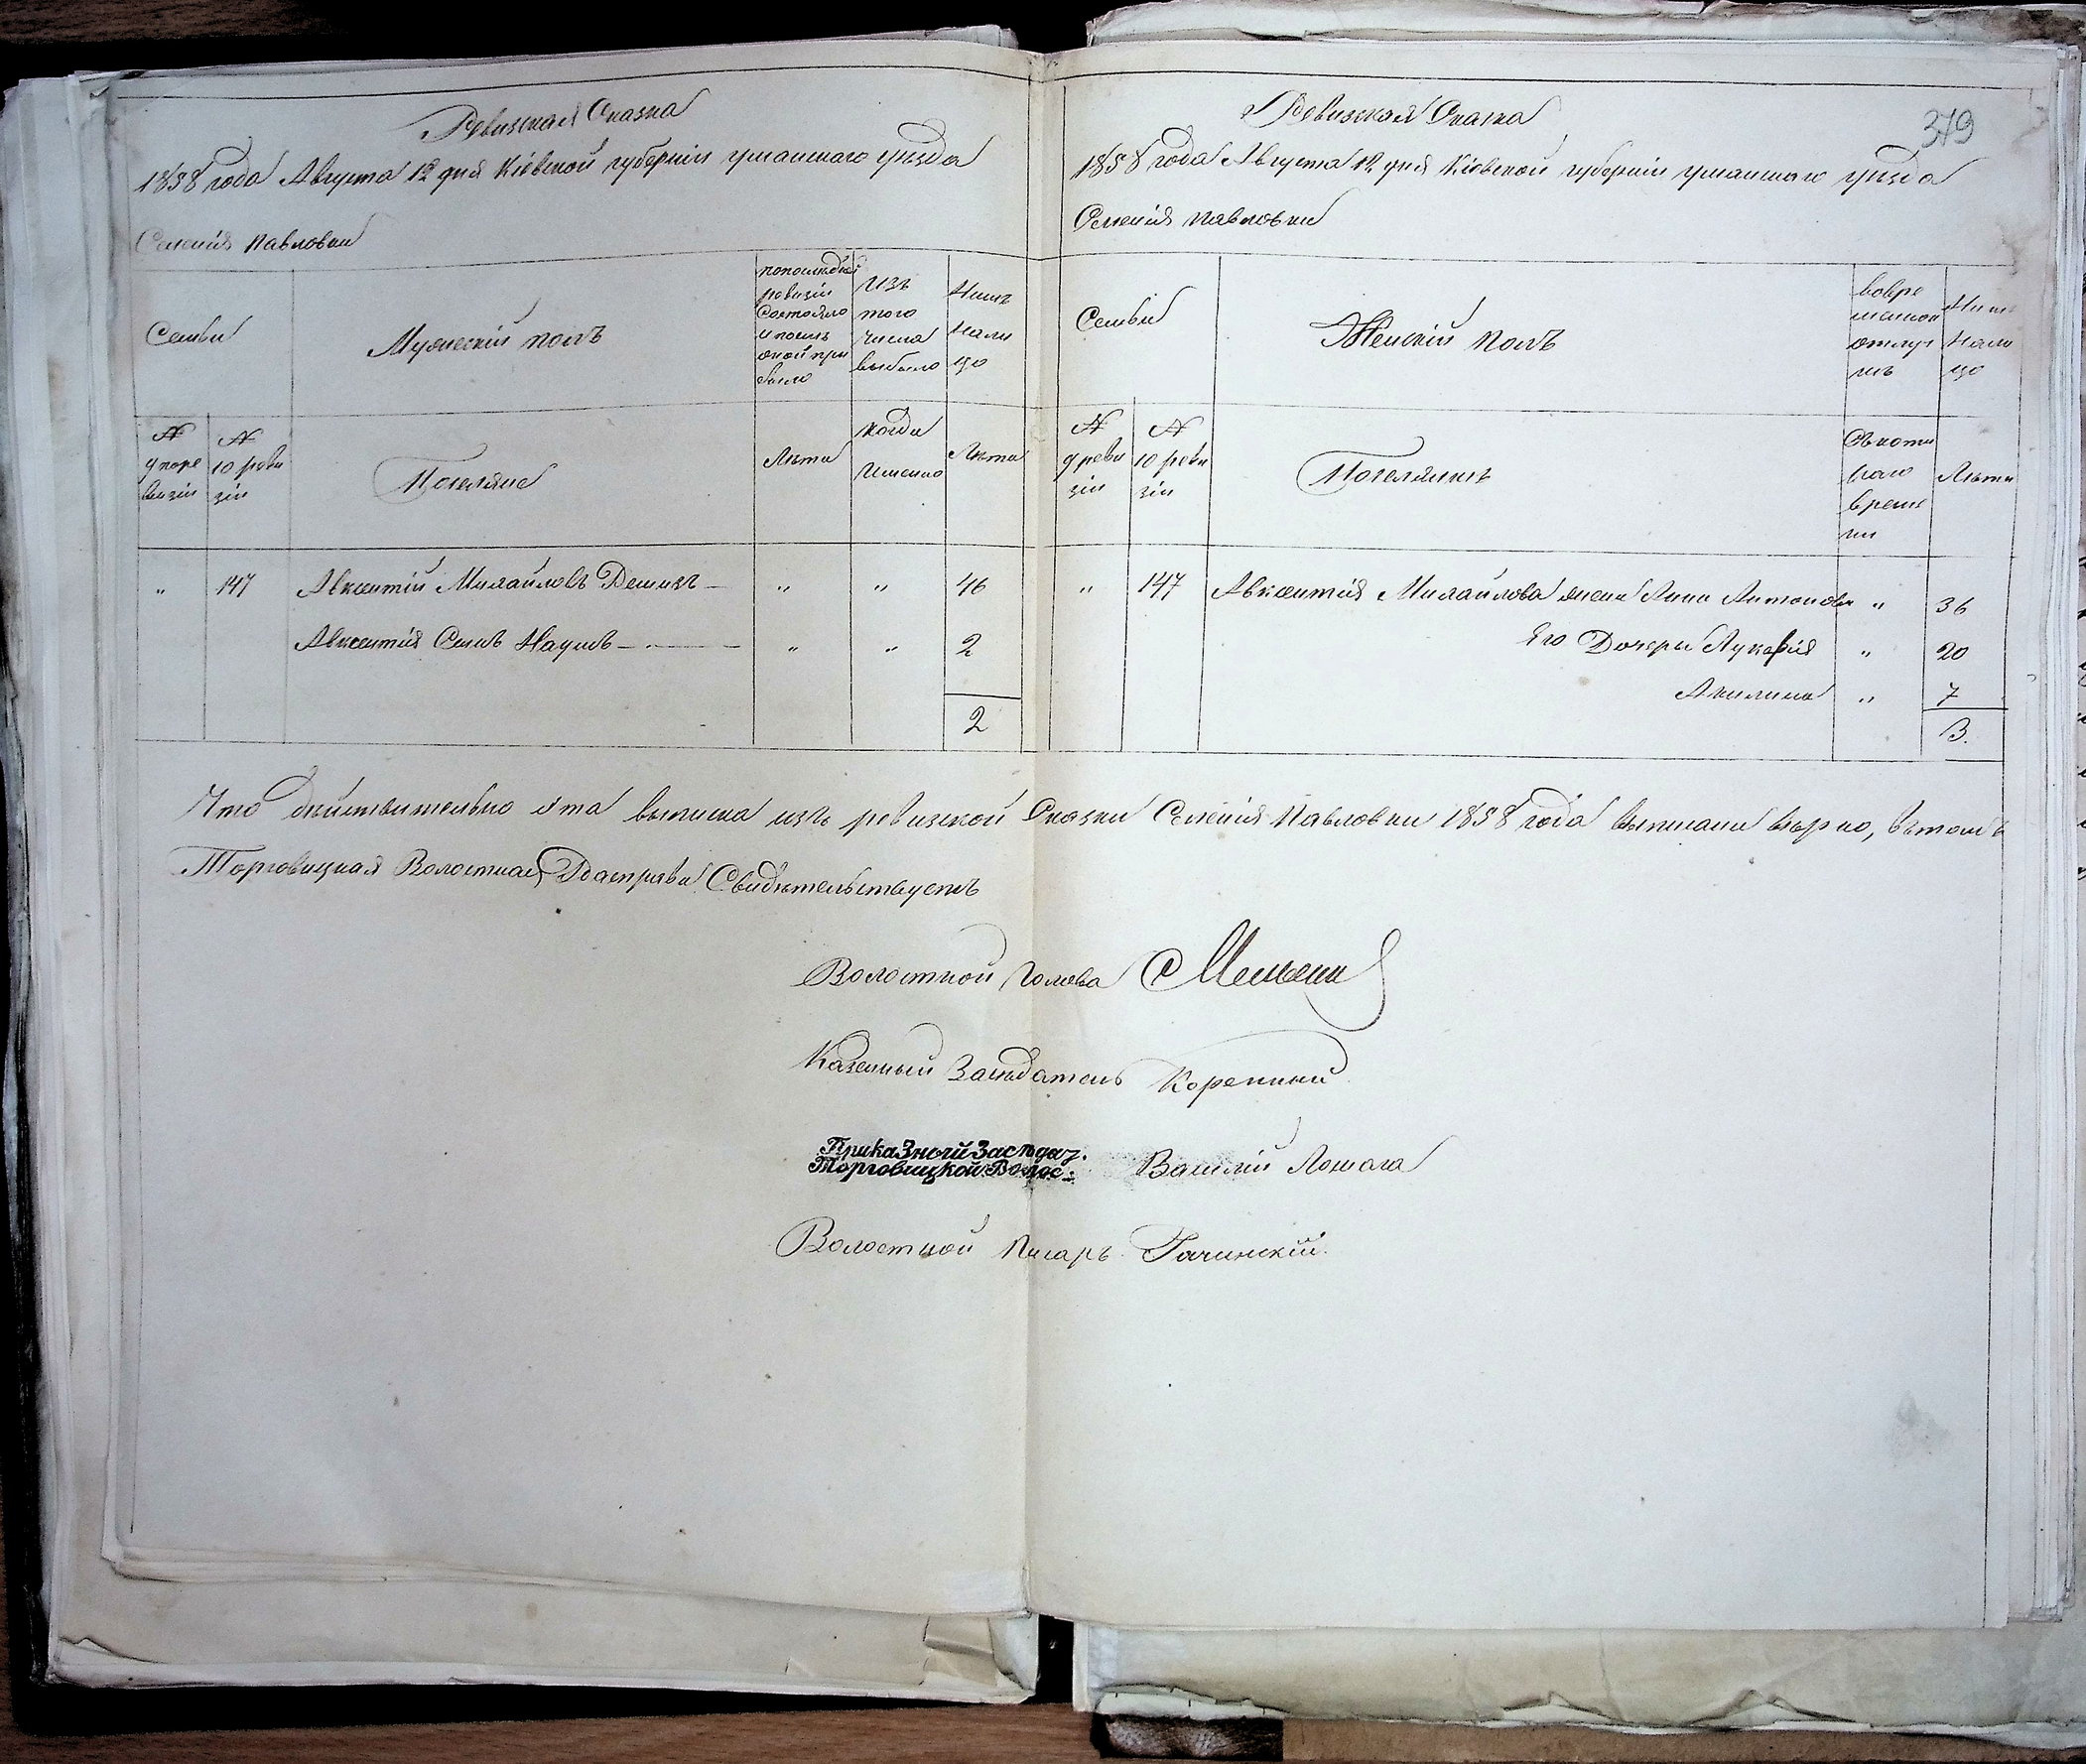 Ревизская Сказка
1858 года Августа 12 дня Кіевской губерніи уманскаго уезда
Селенія Павловки
Семьи
Мужескій полъ
по последней ревизіи Состояло и после оной прибыло
Изъ того числа выбыло
Ныне на лицо
№ 9 норевизіи
№ 10 ревизіи
Поселяне
Лета
когда Именно
Лета
" 147 Авксентій Михайловъ — " " 46
Авксентія Сынъ Наумъ — " " 2
2
Ревизская Сказка
379
1858 года Августа 12 дня Кіевской губерніи уманскаго уезда
Селенія Павловки
Семьи
Женскій полъ
вовременной отлучке
Ныне на лицо
№ 9 ревизіи
№ 10 ревизіи
Поселянкѣ
Съ котораго времени
Лета
" 147 Авксентія Михайлова жена Анна Антонова " 36
Его Дочери Лукерія " 20
Акилина " 7
3.
Что действительно эта выписка изъ ревизской Сказки Селенія Павловки 1858 года выписана верно, въ томъ
Торговицкая Волостная Росправа Свидѣтельствуетъ
Волостной Голова С
Казенный Заседатель
Приказный Заседат.
Торговицкой Волос: Василій
Волостной Писарь Гачинскій.